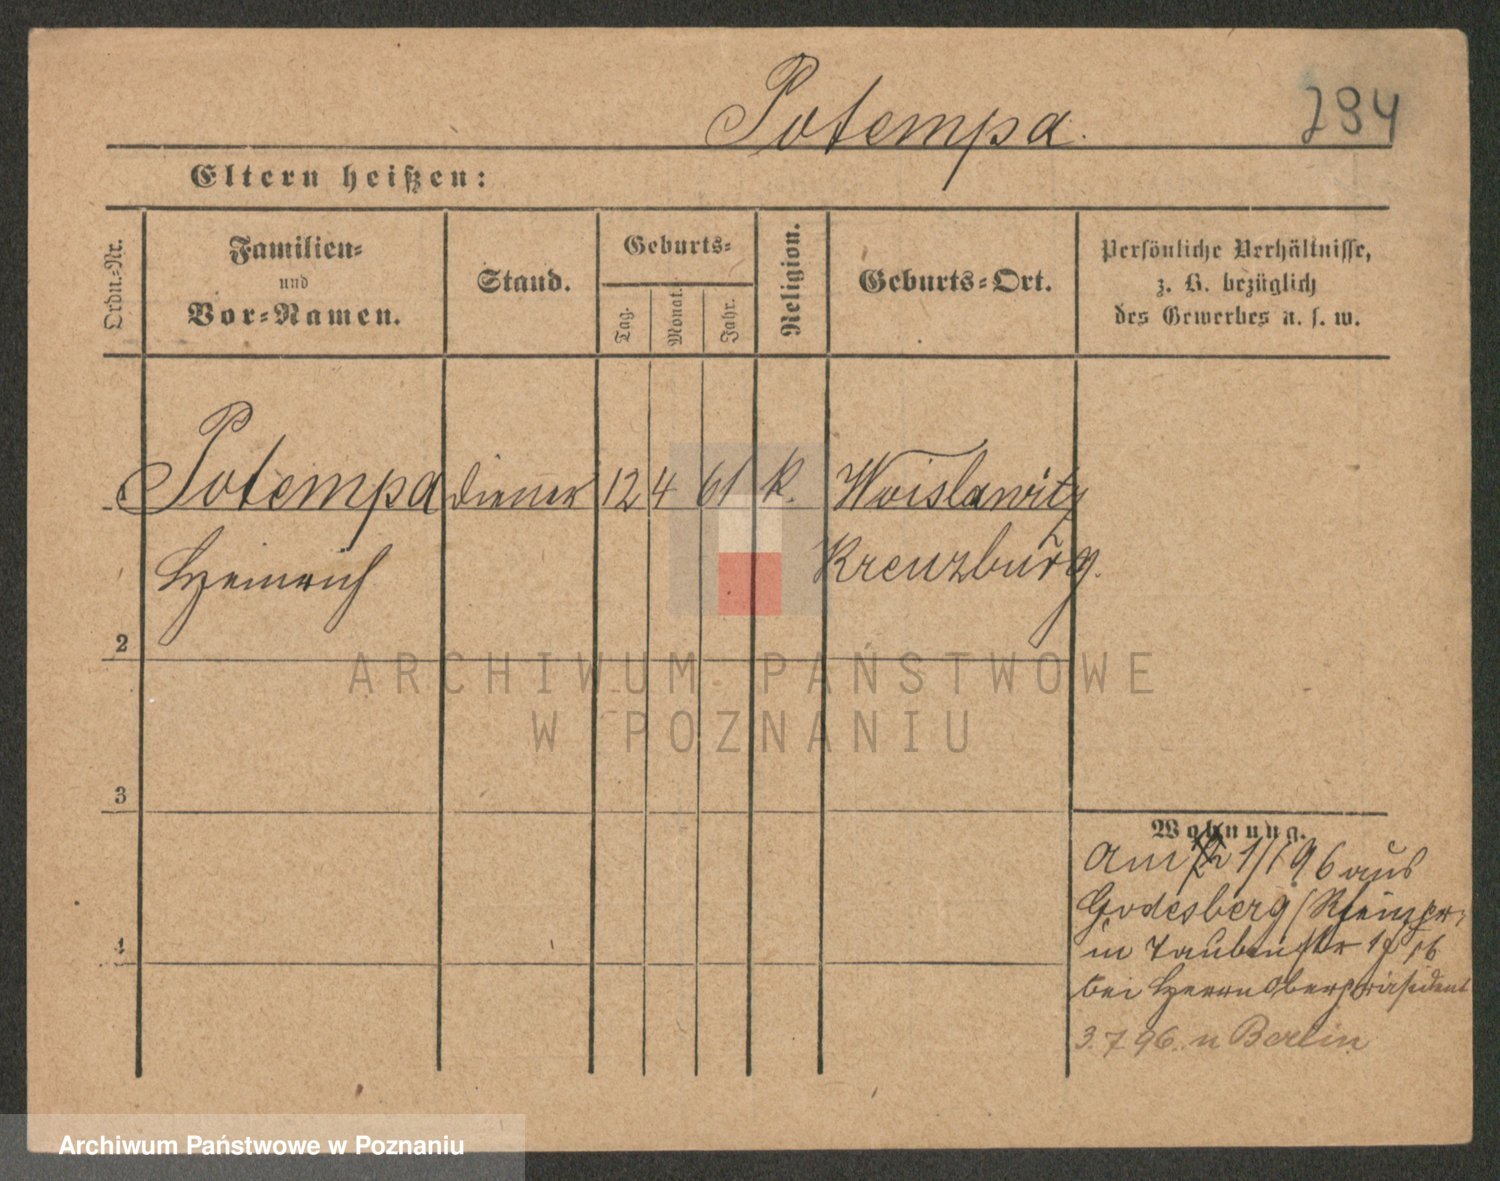 Potempa.
294
Eltern heißen:
Ordn.-Nr.
Familien-
und
Vor-Namen.
Stand.
Geburts-
Tag.
Monat.
Jahr.
Religion.
Geburts-Ort.
Persönliche Verhältnisse,
z. B. bezüglich
des Gewerbes u. s. w.
Potempa Diener 12 4 61 k. Woislawitz
Heinrich Kreuzburg.
2
3
4
Wohnung.
Am 1/1 96 aus
Godesberg
in Taubenstr 16
bei Herrn Oberpräsident
3.7.96. n Berlin
ARCHIWUM PAŃSTWOWE
W POZNANIU
Archiwum Państwowe w Poznaniu